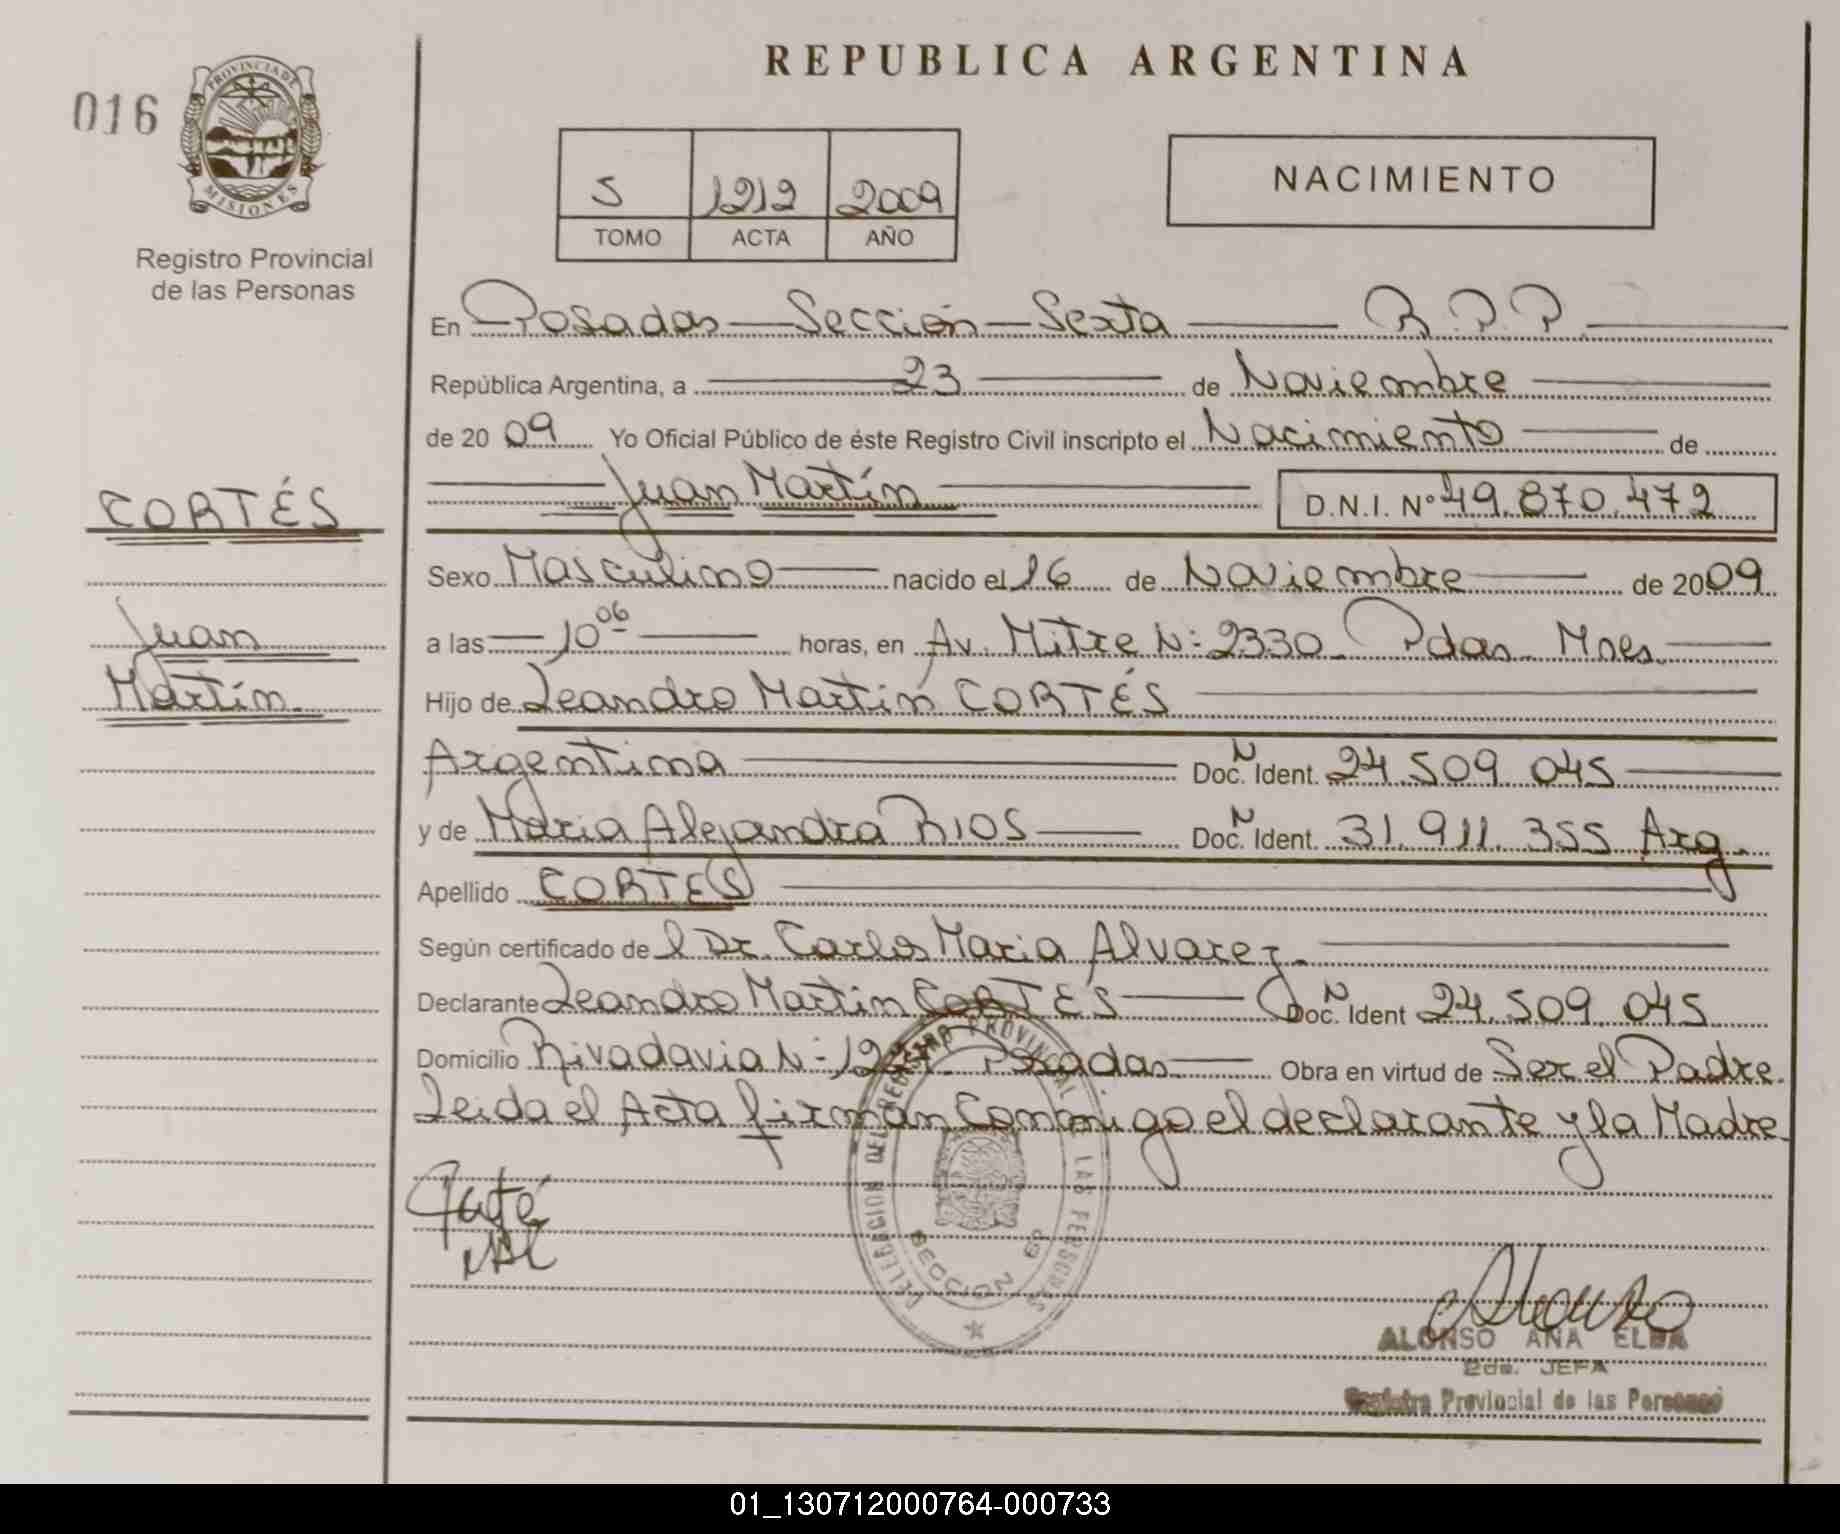 REPUBLICA ARGENTINA
016
PROVINCIA DE
MISIONES
Registro Provincial
de las Personas
NACIMIENTO
5 1212 2009
TOMO ACTA AÑO
En Posadas Sección Sexta R.P.P.
República Argentina, a 23 de Noviembre
de 2009 Yo Oficial Público de éste Registro Civil inscripto el Nacimiento de
Juan Martín D.N.I. Nº 49.870.472
CORTÉS
Juan
Martín.
Sexo Masculino nacido el 16 de Noviembre de 2009
a las 10 06 horas, en Av. Mitre N: 2330 Pdas. Mnes.
Hijo de Leandro Martín CORTÉS
Argentina Doc. N Ident. 24.509.045
y de Maria Alejandra RIOS Doc. N Ident. 31.911.355 Arg.
Apellido CORTES
Según certificado de l Dr. Carlos Maria Alvarez.
Declarante Leandro Martin CORTÉS Doc. N Ident 24.509.045
Domicilio Rivadavia N: Posadas Obra en virtud de Ser el Padre.
Leida el Acta firman Conmigo el declarante y la Madre.
DELEGACION DEL REGISTRO PROVINCIAL DE LAS PERSONAS
SECCION 6ª
Alonso
ALONSO ANA ELBA
2da. JEFA
Registro Provincial de las Personas
01_130712000764-000733